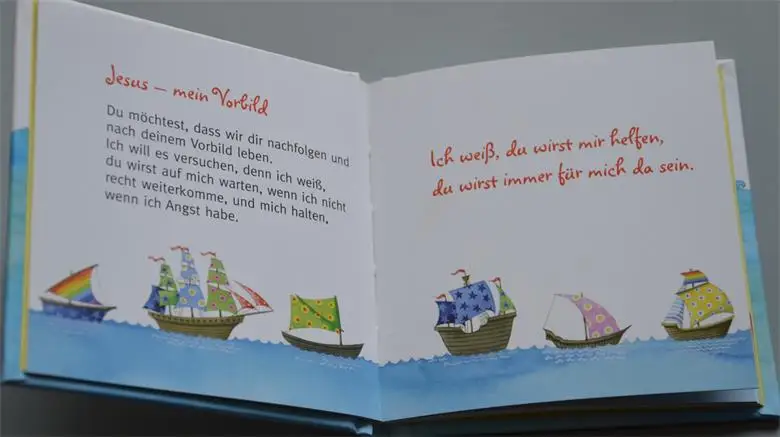 Jesus – mein Vorbild
Du möchtest, dass wir dir nachfolgen und
nach deinem Vorbild leben.
Ich will es versuchen, denn ich weiß,
du wirst auf mich warten, wenn ich nicht
recht weiterkomme, und mich halten,
wenn ich Angst habe.
Ich weiß, du wirst mir helfen,
du wirst immer für mich da sein.